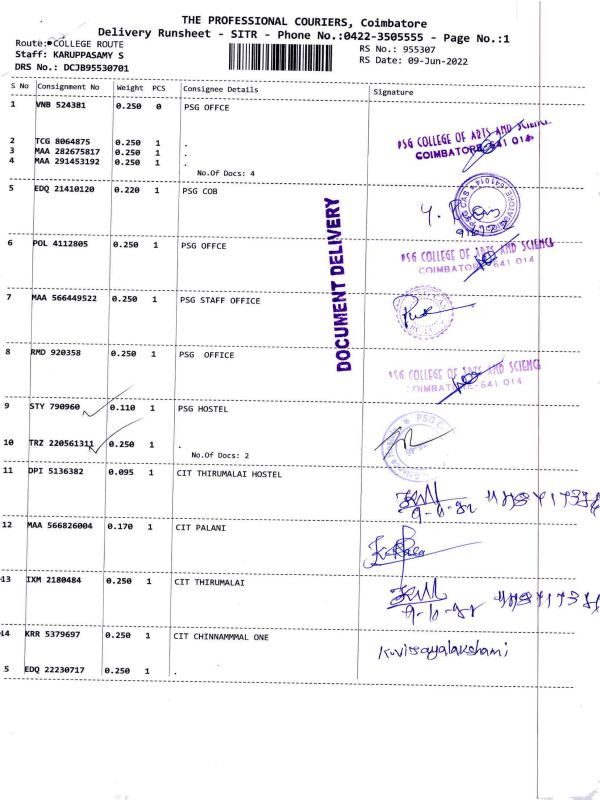 THE PROFESSIONAL COURIERS, Coimbatore
Delivery Runsheet - SITR - Phone No.:0422-3505555 - Page No.:1
Route: COLLEGE ROUTE
RS No.: 955307
Staff: KARUPPASAMY S
RS Date: 09-Jun-2022
DRS No.: DCJB95530701
S No Consignment No Weight PCS Consignee Details Signature
1 VNB 524381 0.250 0 PSG OFFCE
PSG COLLEGE OF ARTS AND SCIENCE
COIMBATORE-641 014
2 TCG 8064875 0.250 1 .
3 MAA 282675817 0.250 1 .
4 MAA 291453192 0.250 1 .
No.Of Docs: 4
5 EDQ 21410120 0.220 1 PSG COB
DOCUMENT DELIVERY
6 POL 4112805 0.250 1 PSG OFFCE
PSG COLLEGE OF ARTS AND SCIENCE
COIMBATORE-641 014
7 MAA 566449522 0.250 1 PSG STAFF OFFICE
8 RMD 920358 0.250 1 PSG OFFICE
PSG COLLEGE OF ARTS AND SCIENCE
COIMBATORE-641 014
9 STY 790960 0.110 1 PSG HOSTEL
10 TRZ 220561311 0.250 1 .
No.Of Docs: 2
11 DPI 5136382 0.095 1 CIT THIRUMALAI HOSTEL
12 MAA 566826004 0.170 1 CIT PALANI
13 IXM 2180484 0.250 1 CIT THIRUMALAI
14 KRR 5379697 0.250 1 CIT CHINNAMMMAL ONE
5 EDQ 22230717 0.250 1 .